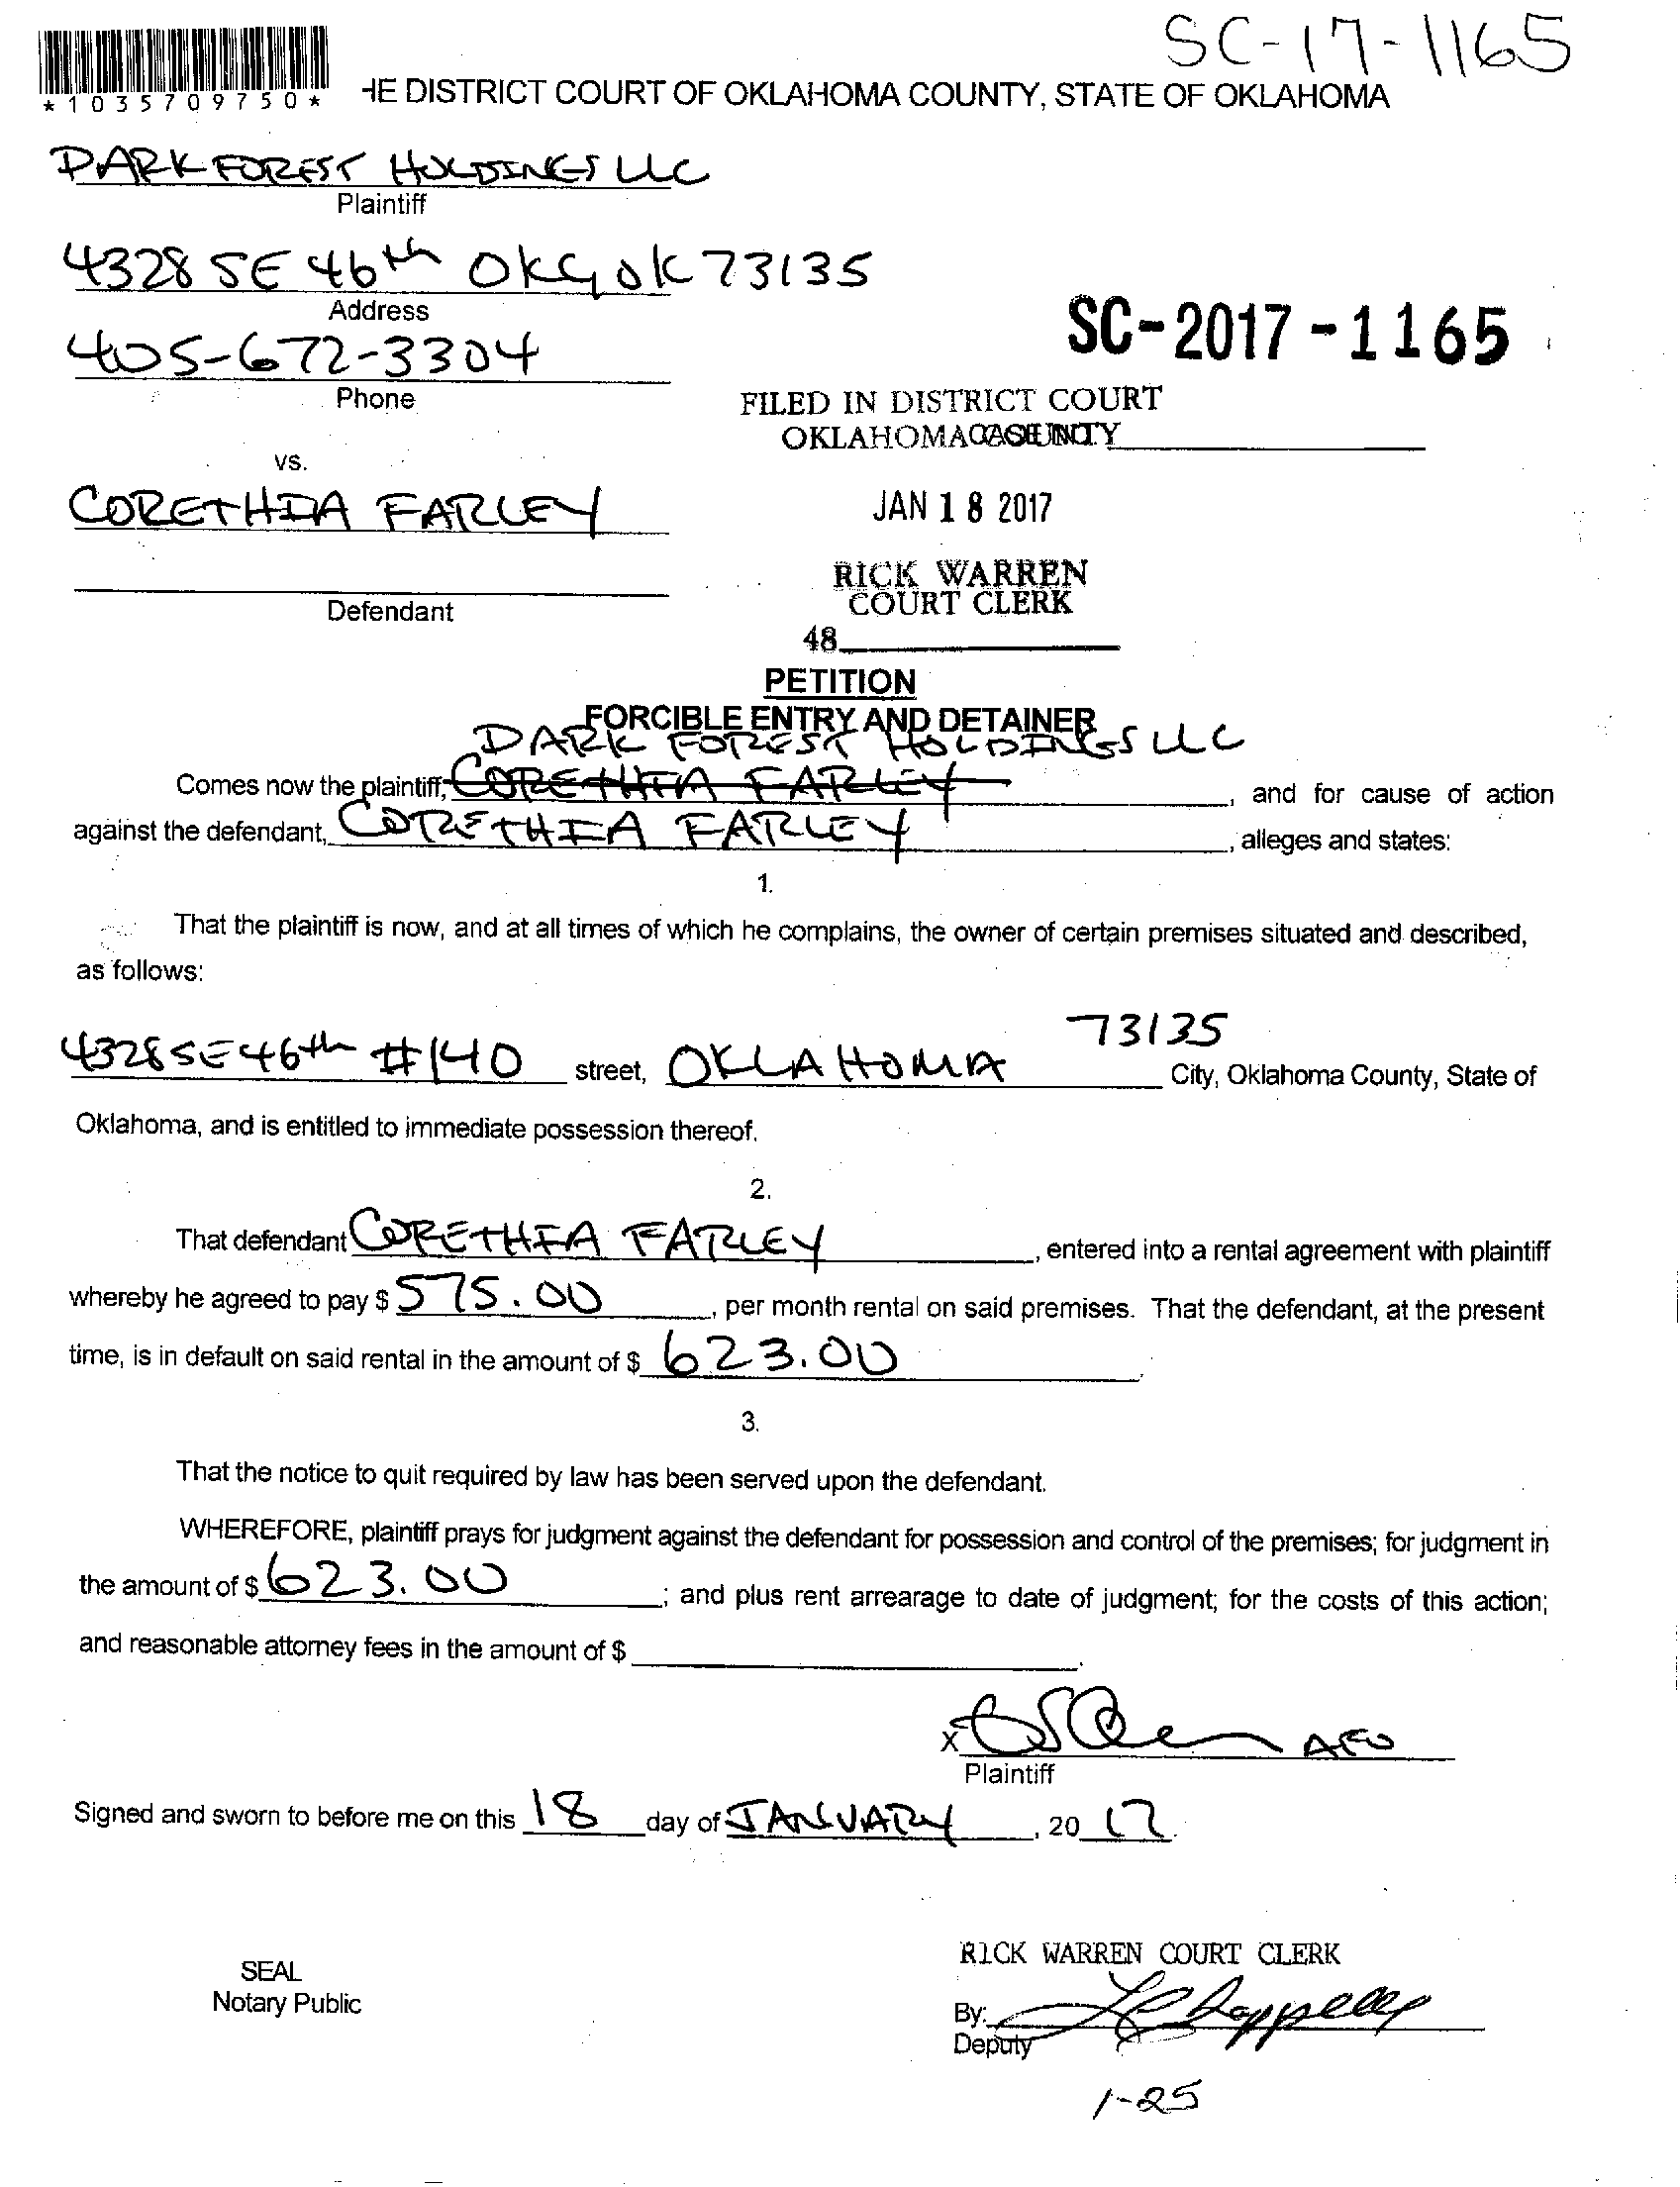 SC-17-1165
*1035709750*
HE DISTRICT COURT OF OKLAHOMA COUNTY, STATE OF OKLAHOMA
PARK FOREST HOLDINGS LLC
Plaintiff
4328 SE 46th OKC, OK 73135
Address
405-672-3304
Phone
SC-2017-1165
FILED IN DISTRICT COURT
OKLAHOMA COUNTY
vs.
CORETHIA FARLEY
JAN 18 2017
RICK WARREN
COURT CLERK
Defendant
48
PETITION
FORCIBLE ENTRY AND DETAINER
PARK FOREST HOLDINGS LLC
Comes now the plaintiff, CORETHIA FARLEY, and for cause of action
against the defendant, CORETHIA FARLEY, alleges and states:
1.
That the plaintiff is now, and at all times of which he complains, the owner of certain premises situated and described,
as follows:
73135
4328 SE 46th #140 street, OKLAHOMA City, Oklahoma County, State of
Oklahoma, and is entitled to immediate possession thereof.
2.
That defendant CORETHIA FARLEY, entered into a rental agreement with plaintiff
whereby he agreed to pay $ 575.00, per month rental on said premises. That the defendant, at the present
time, is in default on said rental in the amount of $ 623.00.
3.
That the notice to quit required by law has been served upon the defendant.
WHEREFORE, plaintiff prays for judgment against the defendant for possession and control of the premises; for judgment in
the amount of $ 623.00; and plus rent arrearage to date of judgment; for the costs of this action;
and reasonable attorney fees in the amount of $ .
X
Plaintiff
Signed and sworn to before me on this 18 day of JANUARY, 20 17.
RICK WARREN COURT CLERK
SEAL
Notary Public
By:
Deputy
1-25